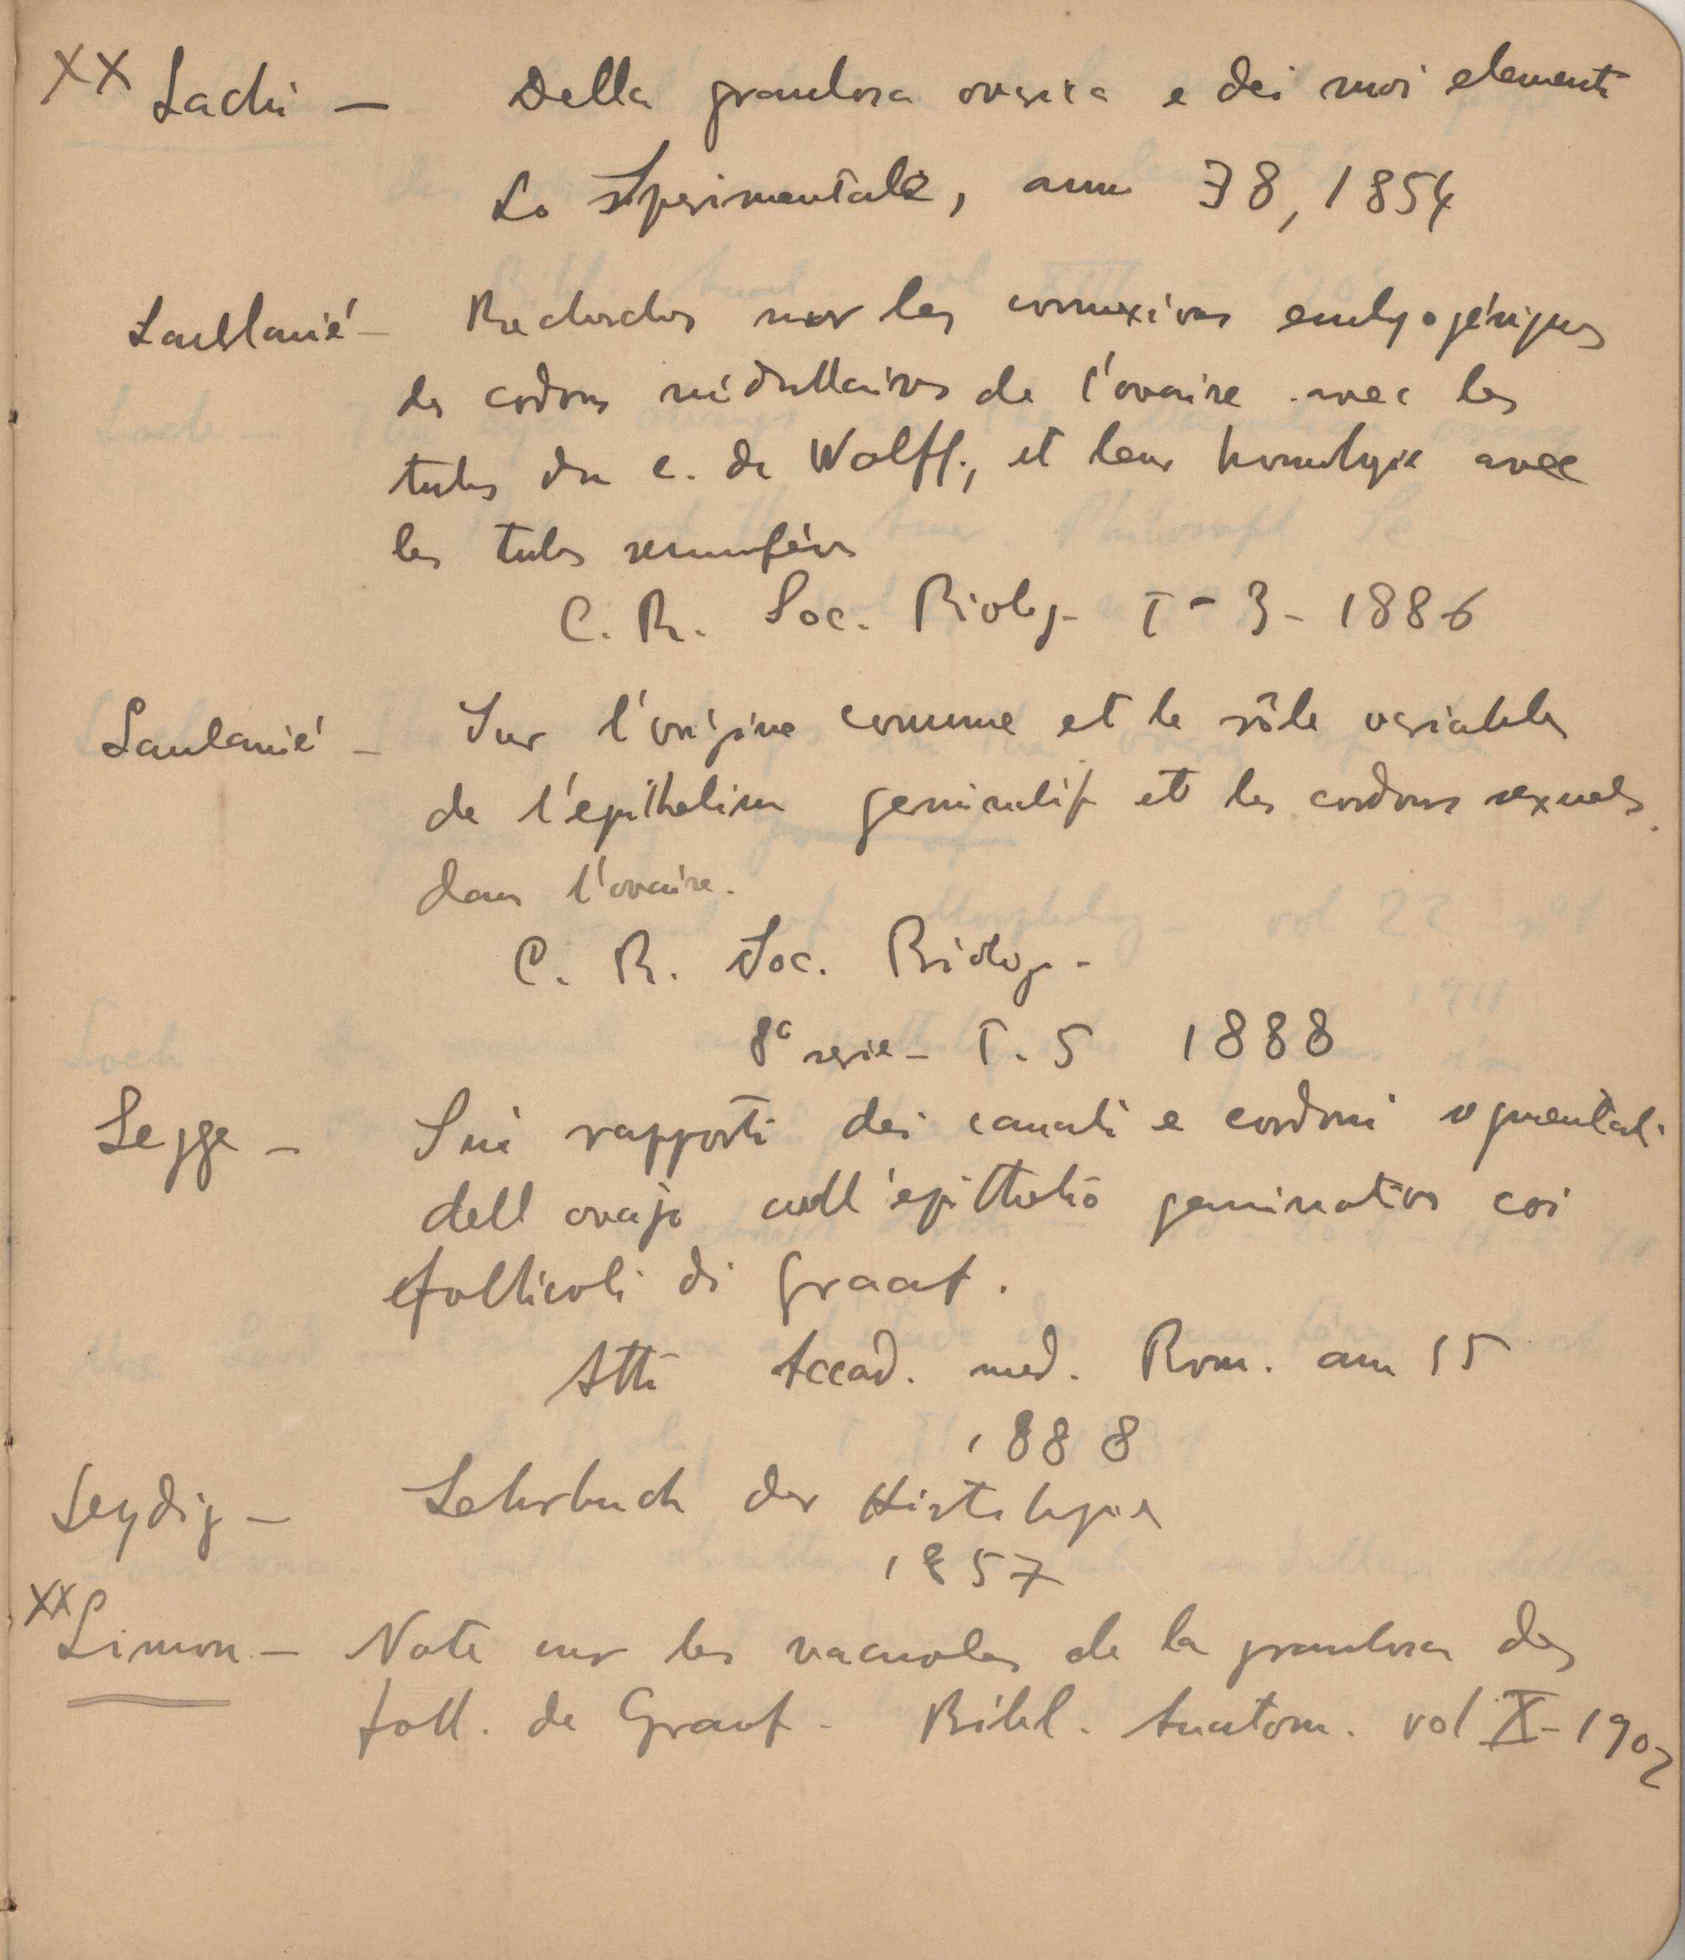 XX Lachi — Della granulosa ovarica e dei suoi elementi
Lo Sperimentale, ann 38, 1854
Laulanié — Recherches sur les connexions embryogéniques
des cordons médullaires de l'ovaire avec les
tubes du c. de Wolff, et leur homologie avec
les tubes seminifères
C. R. Soc. Biolog- T-3- 1886
Laulanié — Sur l'origine comune et le rôle variables
de l'epithelium germinatif et les cordons sexuels
dans l'ovaire.
C. R. Soc. Biolog-
8e serie - T. 5 1888
Legge — Sui rapporti dei canali e cordoni segmentali
dell ovajo coll'epithelio germinativo coi
follicoli di Graaf.
Atti Accad. med. Rom. ann 15
1888
Leydig — Lehrbuch der Histologie
1857
XX Limon — Note sur les vacuoles de la granulosa des
foll. de Graaf - Bibl. Anatom. vol X- 1902